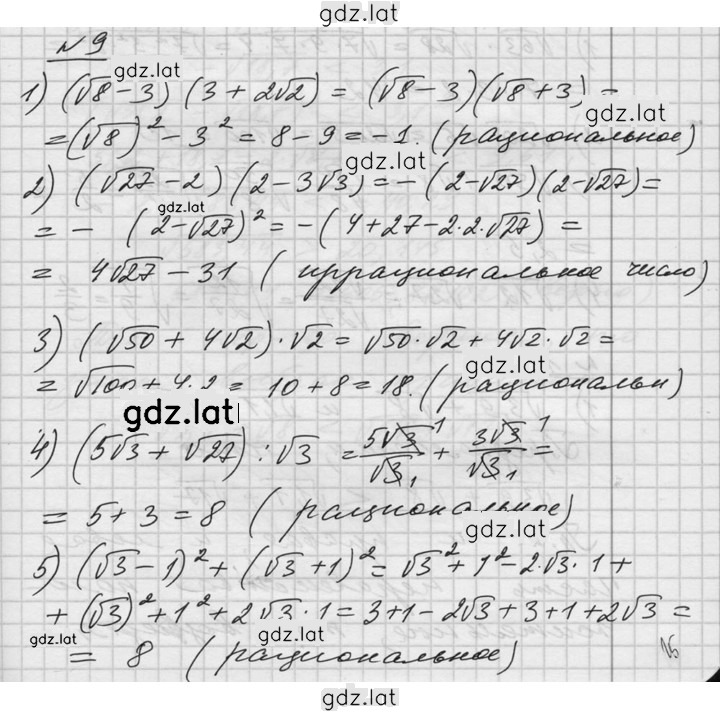 gdz.lat
№9
gdz.lat
1) (√8-3) (3+2√2) = (√8-3)(√8+3) =
gdz.lat
=(√8)² - 3² = 8-9 = -1. (рациональное)
gdz.lat
2) (√27-2) (2-3√3) = -(2-√27)(2-√27)=
gdz.lat
= - (2-√27)² = -(4+27-2·2·√27) =
= 4√27-31 (иррациональное число)
3) (√50+4√2)·√2 = √50·√2+4√2·√2=
gdz.lat
= √100+4·2 = 10+8=18. (рациональн)
gdz.lat
4) (5√3+√27):√3 = 5√3/√3 + 3√3/√3 =
= 5+3 = 8 (рациональное)
gdz.lat
5) (√3-1)² + (√3+1)² = √3²+1²-2·√3·1+
+ (√3)²+1²+2√3·1=3+1-2√3+3+1+2√3 =
gdz.lat
gdz.lat
= 8 (рациональное)
gdz.lat